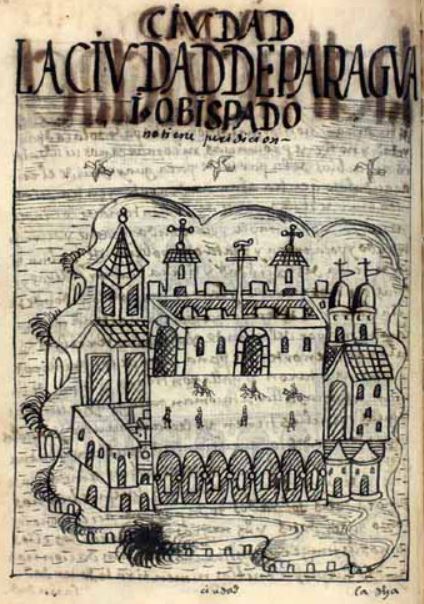 CIVDAD
LA CIVDAD DE PARAGVA
I. OBISPADO
no tiene juridicion
ciudad
la dha